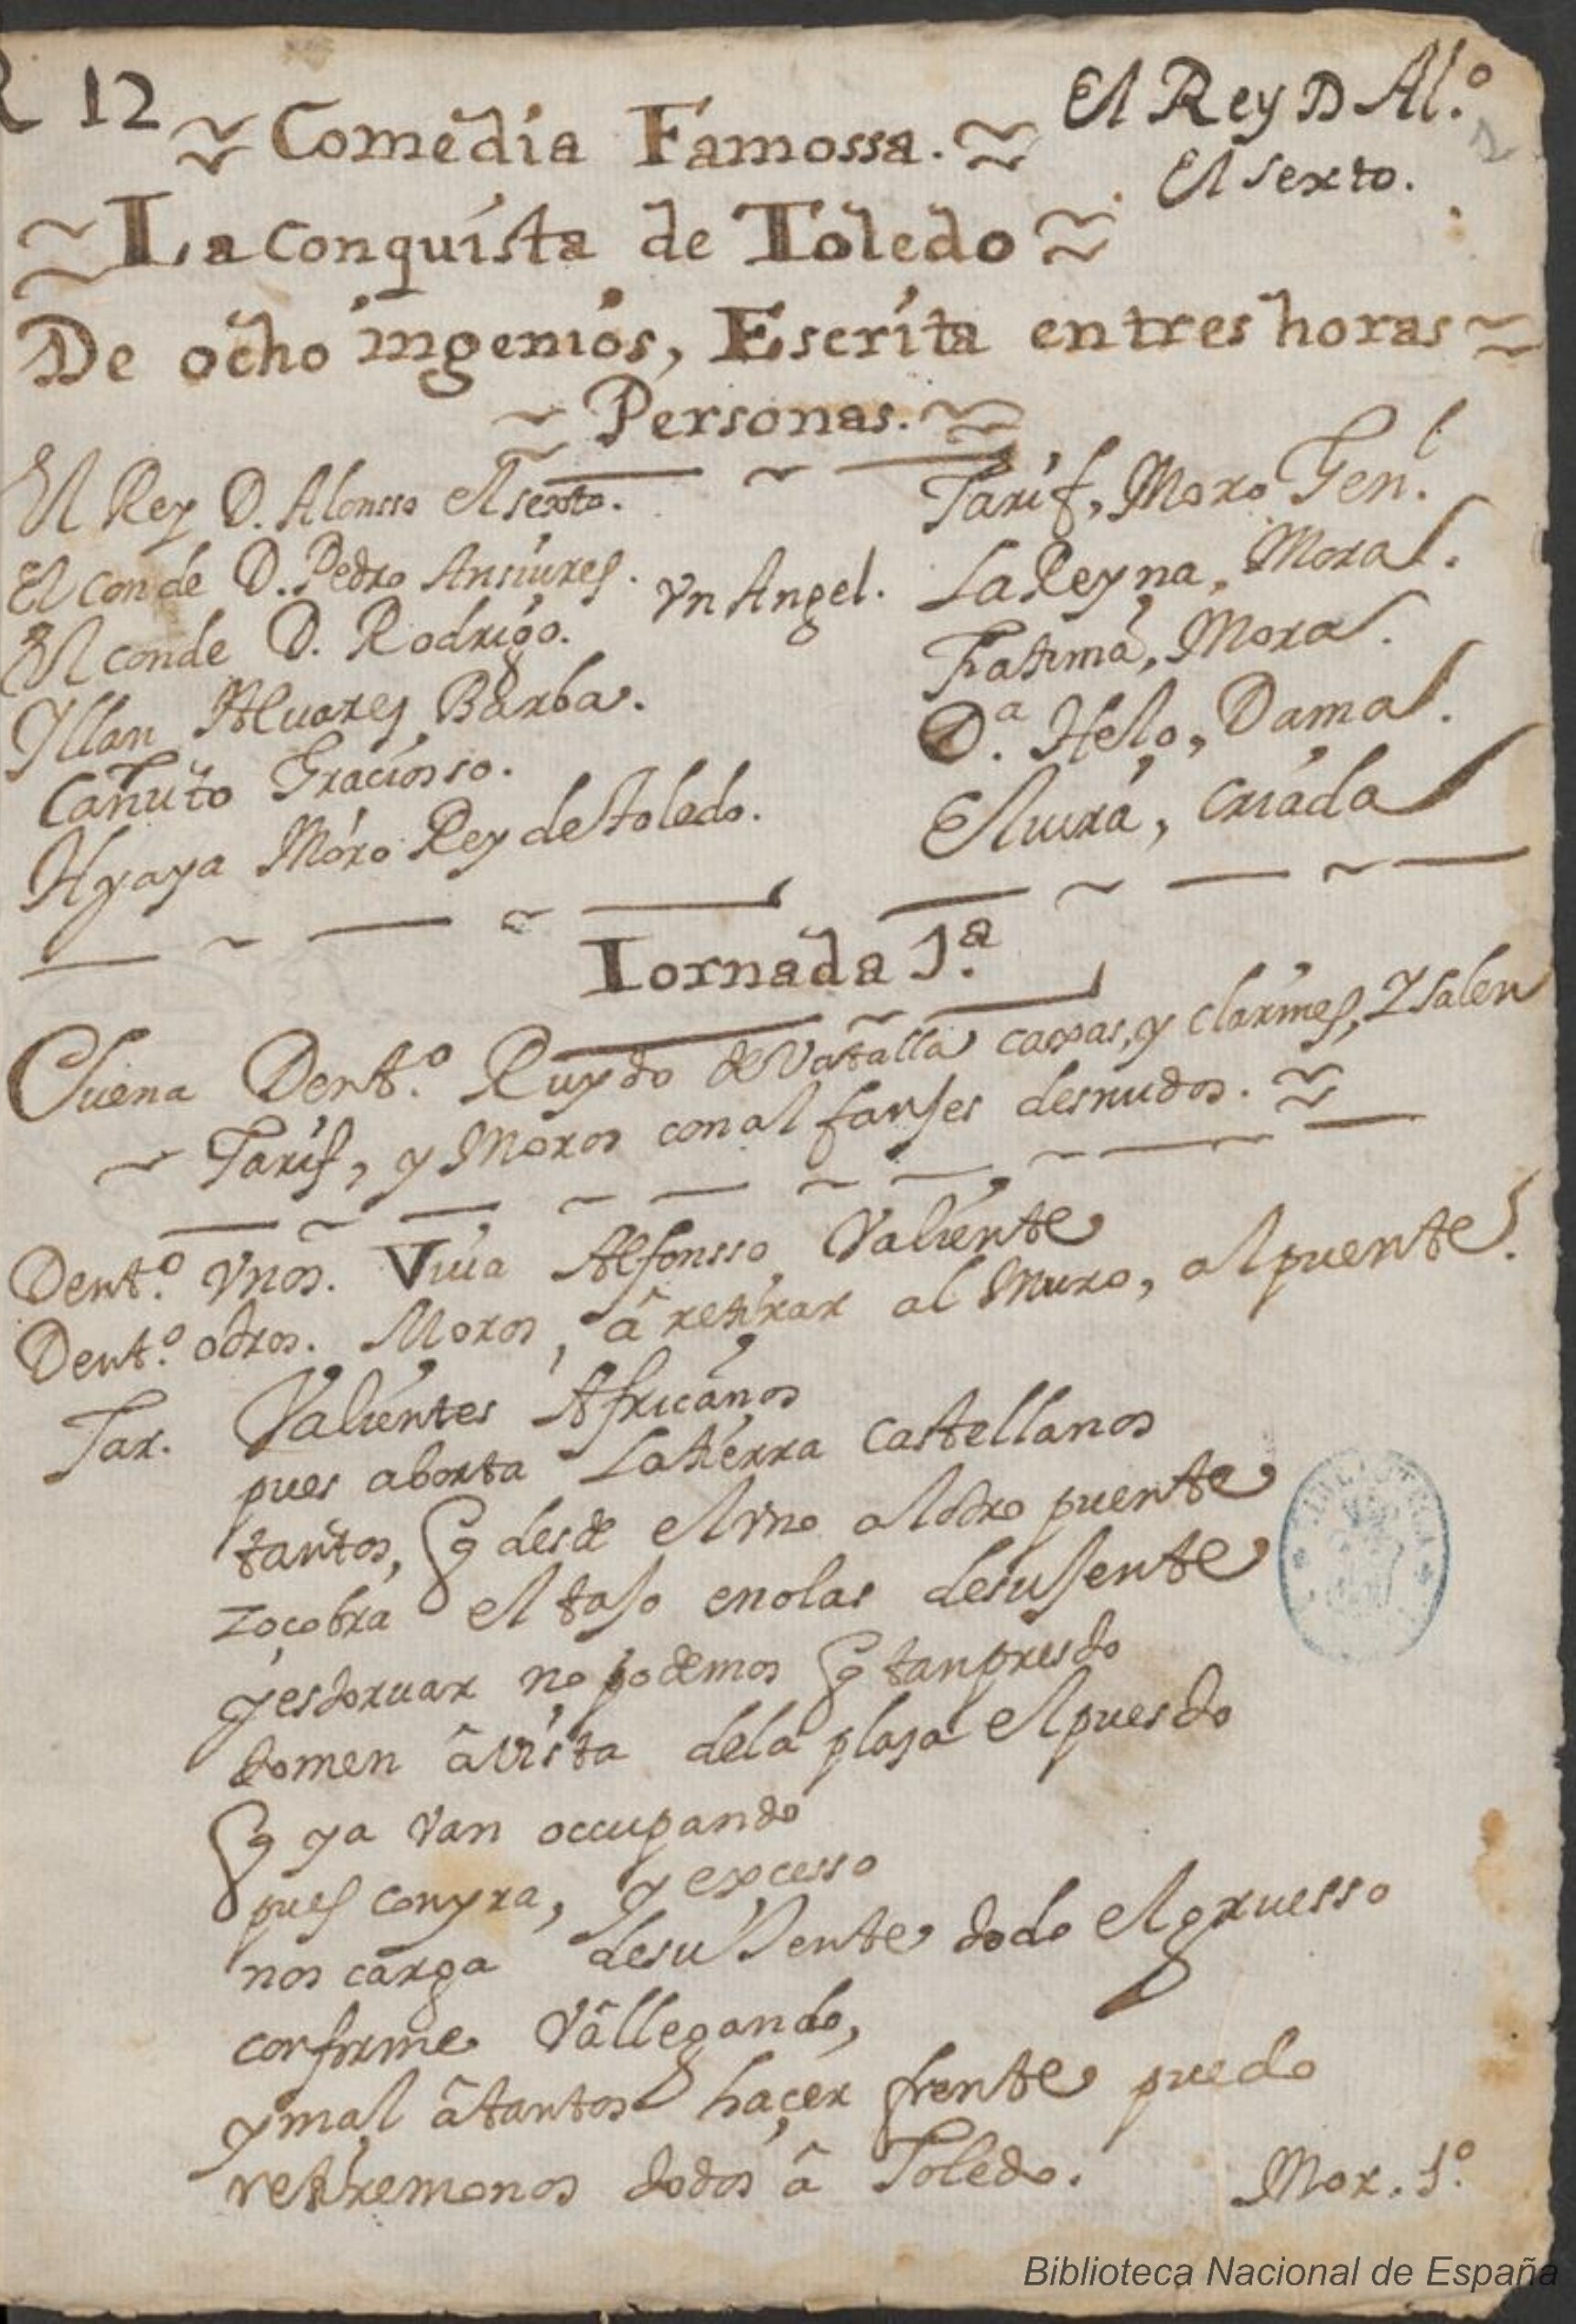 R 12
El Rey D Al.º
El sexto.
Comedia Famossa.
La conquista de Toledo
De ocho ingenios, Escrita en tres horas
Personas.
El Rey D. Alonsso El sexto.
El conde D. Pedro Ansures.
El conde D. Rodrigo.
Yllan Aluares Barba.
Cañuto Graciosso.
Hyaya Moro Rey de toledo.
Vn Angel.
Tarif, Moro Gen.l
La Reyna, Mora.
Fatima, Mora.
D.ª Helo, Dama.
Eluira, criada
Iornada 1.ª
Suena Dent.º Ruydo de Vatalla caxas, y clarines, Y salen
Tarif, y Moros con alfanjes desnudos.
Dent.º Vnos. Viua Alfonsso Valiente
Dent.º otros. Moros, â retirar al Muro, al puente.
Tar. Valientes Africanos
pues aborta La tierra castellanos
tantos, q desde el vno al otro puente
zoçobra el tajo en olas de su jente
y estoruar no podemos q tan presto
tomen â vista de la plaza el puesto
q ya van occupando
pues con yra, y excesso
nos carga de su Jente todo el gruesso
conforme Vâ llegando,
y mal â tantos haçer frente puedo
retiremonos todos â Toledo.
Mor. 1.º
Biblioteca Nacional de España